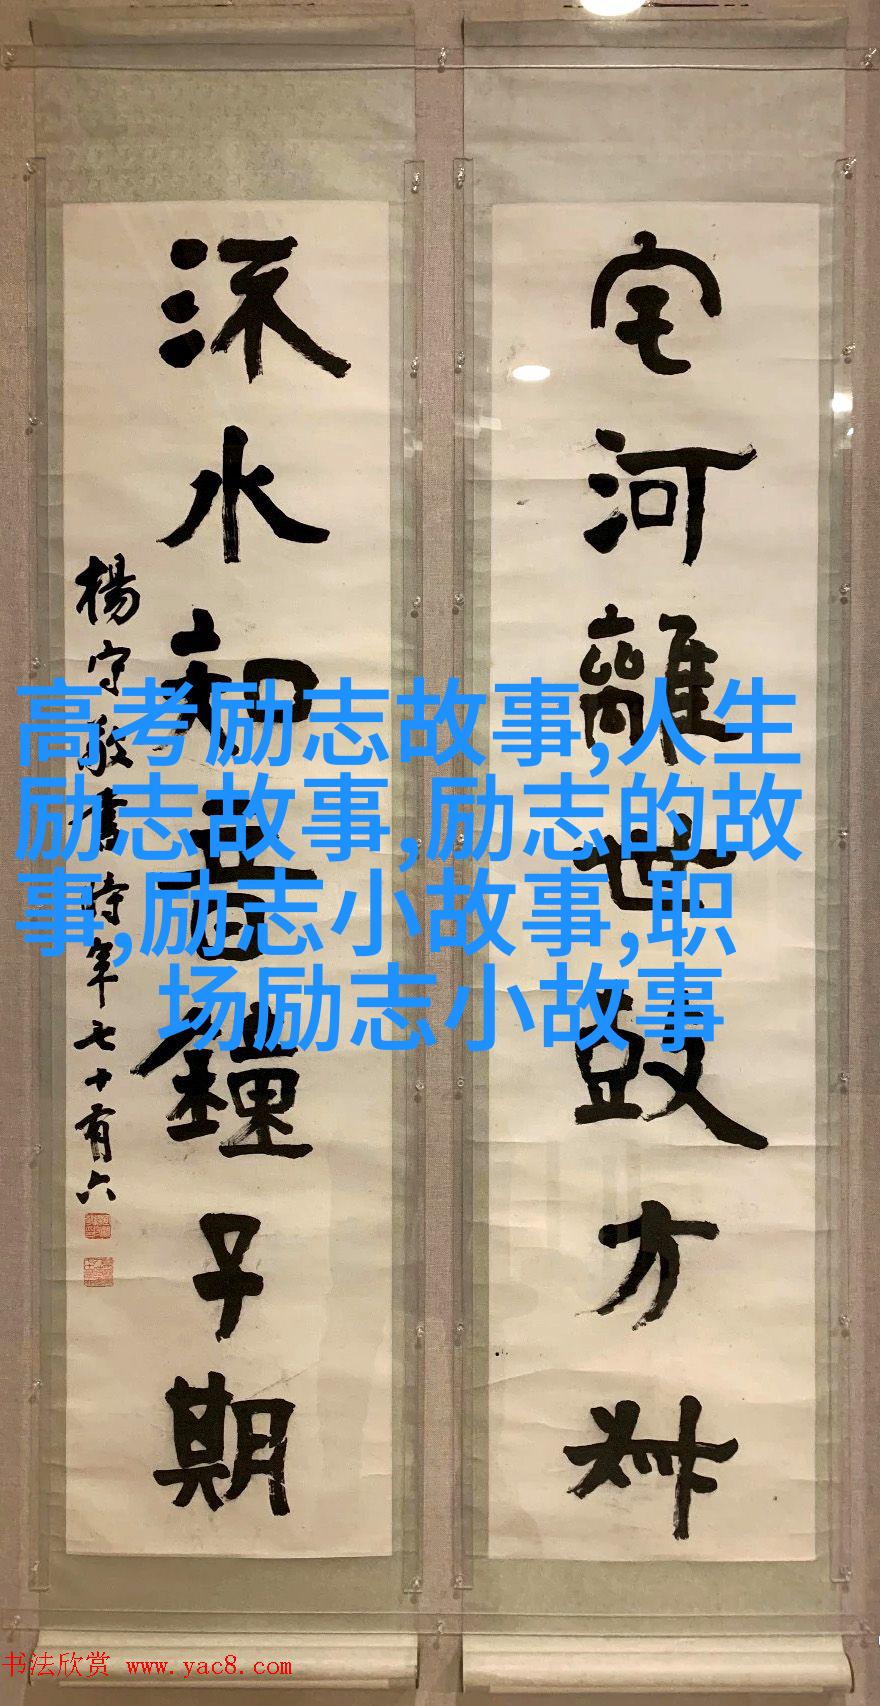 宅河離世鼓方叔
㳅水知音鐘子期
楊守敬書時年七十有六
高考励志故事,人生
励志故事,励志的故
事,励志小故事,职
场励志小故事
书法欣赏 www.yac8.com